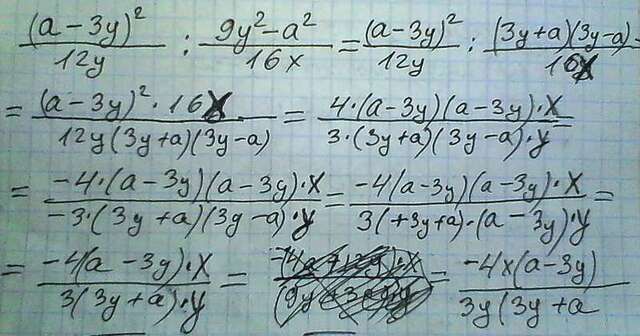 (a - 3y)² / 12y : 9y² - a² / 16x = (a - 3y)² / 12y : (3y + a)(3y - a) / 16x
= (a - 3y)² · 16x / 12y(3y + a)(3y - a) = 4 · (a - 3y)(a - 3y) · x / 3 · (3y + a)(3y - a) · y =
= -4 · (a - 3y)(a - 3y) · x / -3 · (3y + a)(3y - a) · y = -4(a - 3y)(a - 3y) · x / 3(+3y + a) · (a - 3y) · y =
= -4(a - 3y) · x / 3(3y + a) · y = = -4x(a - 3y) / 3y(3y + a